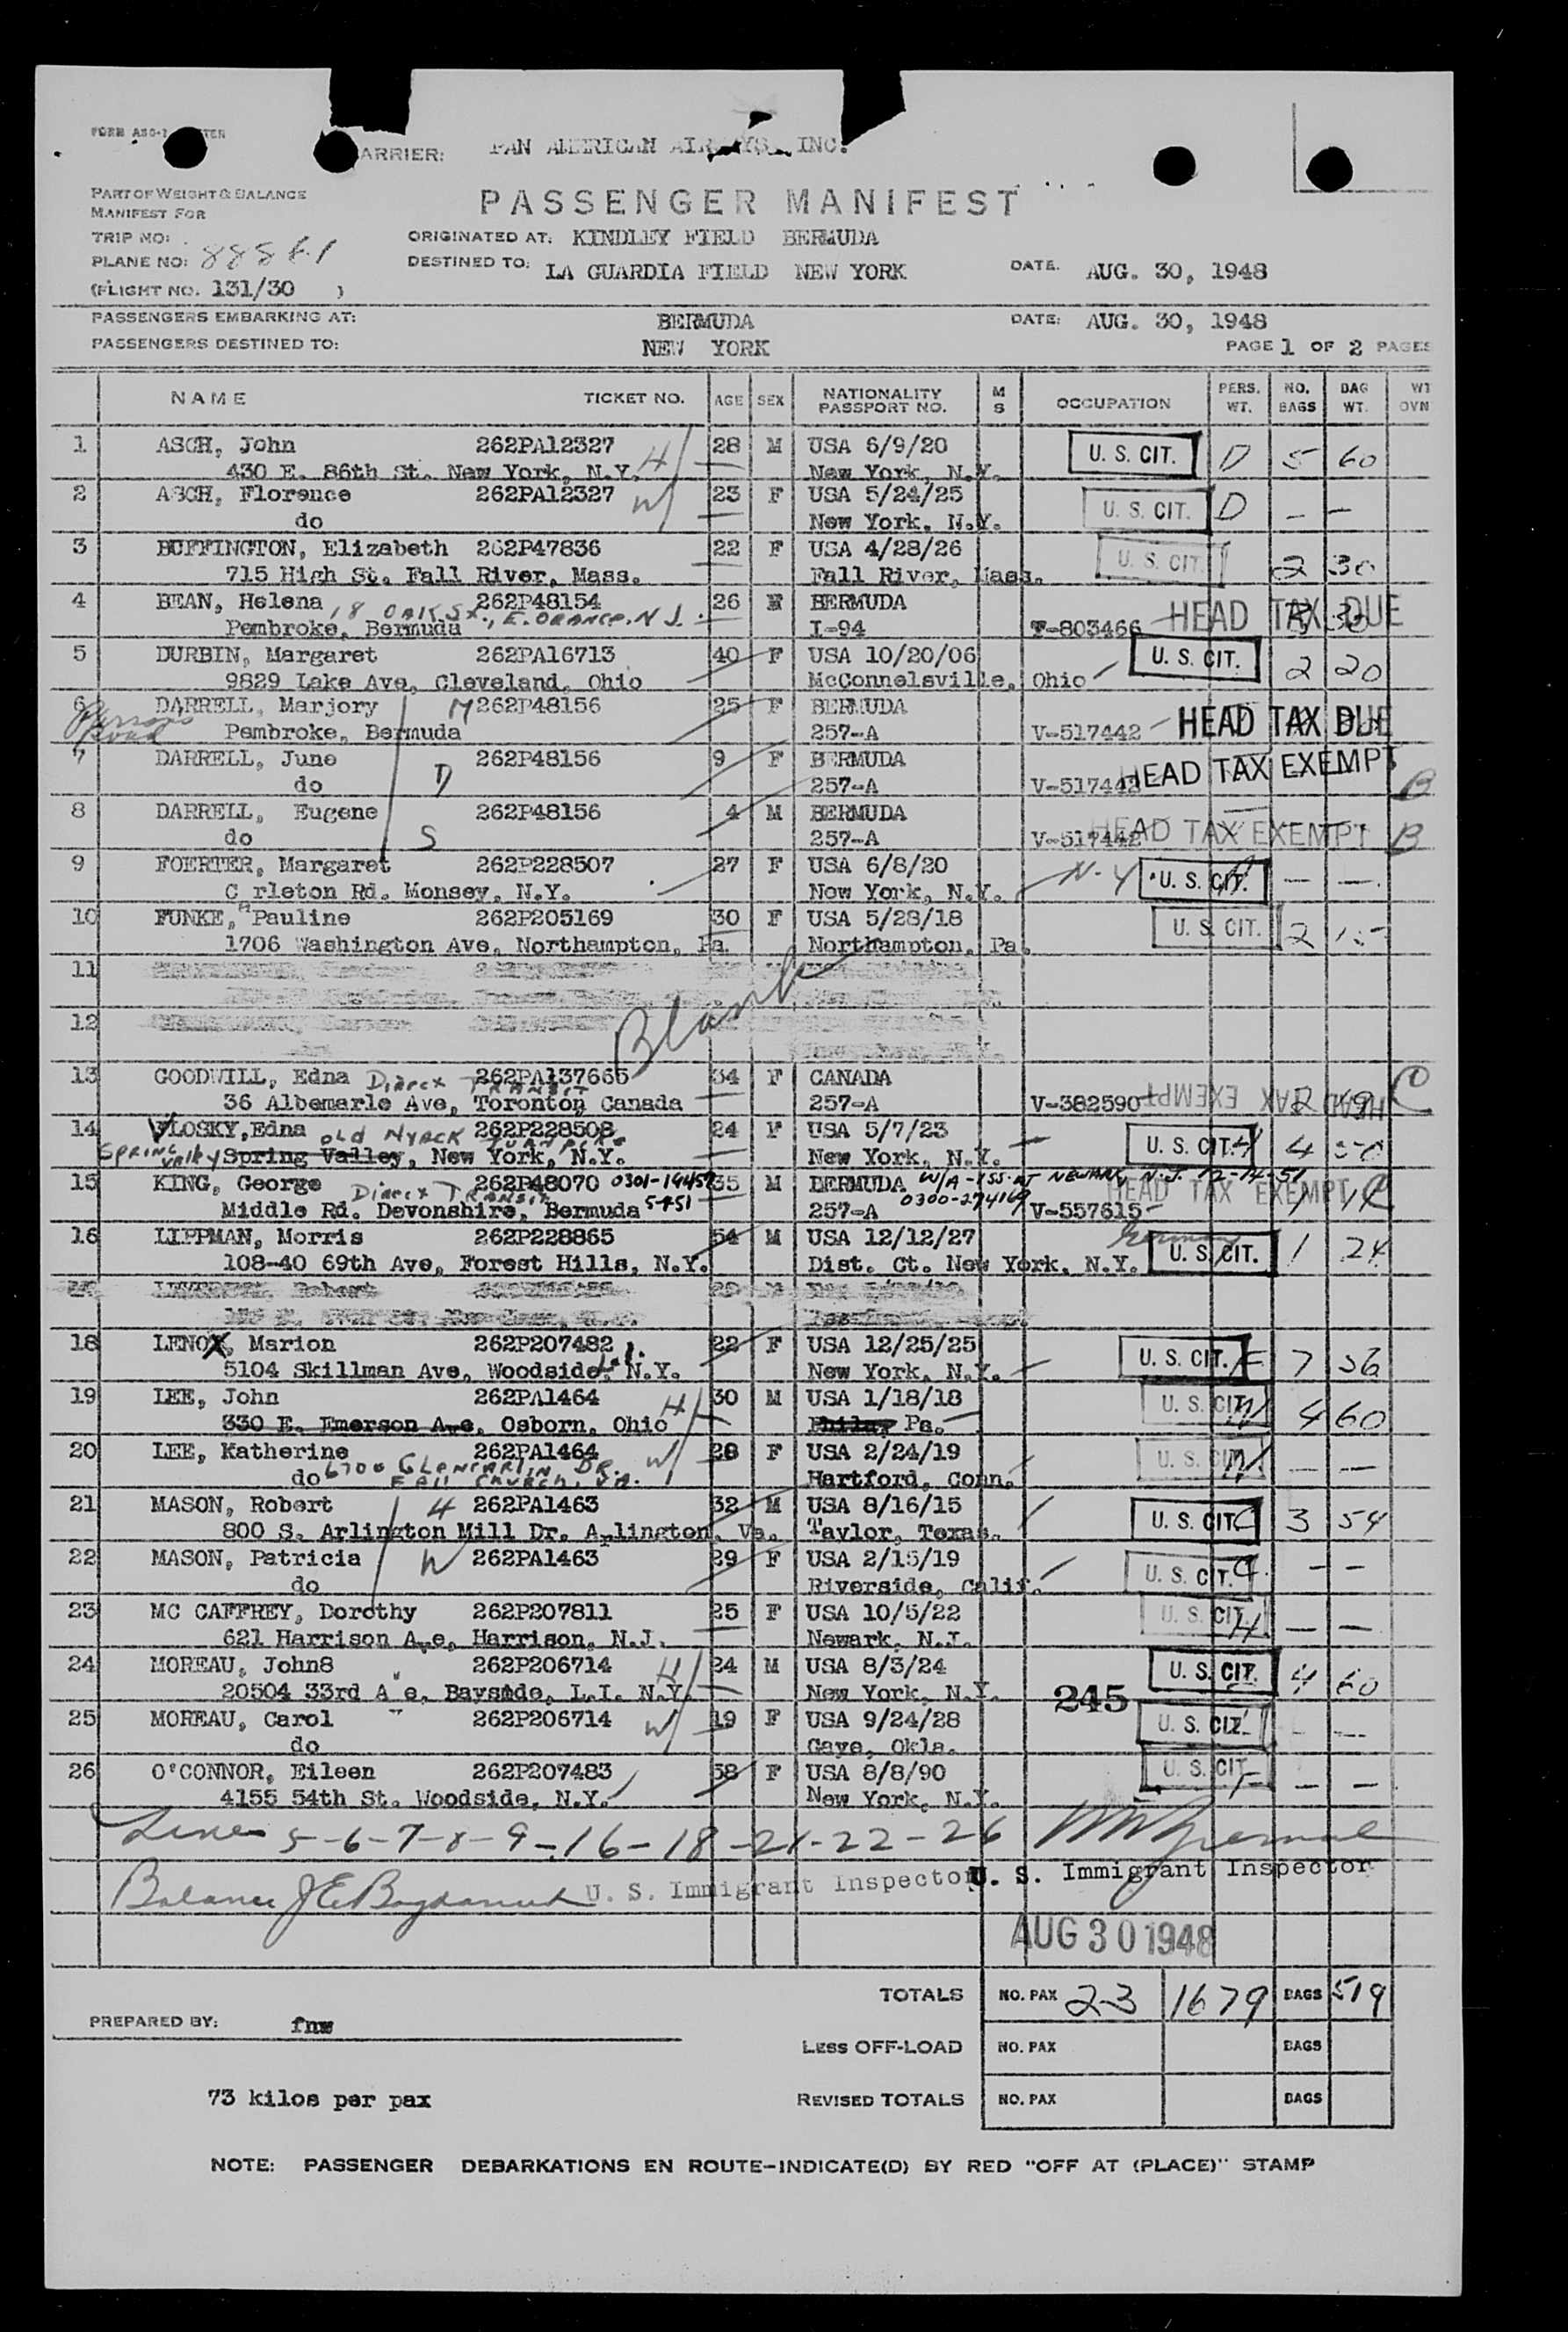 CARRIER: PAN AMERICAN AIRWAYS, INC.
PART OF WEIGHT & BALANCE
MANIFEST FOR
PASSENGER MANIFEST
TRIP NO:
ORIGINATED AT: KINDLEY FIELD BERMUDA
PLANE NO: 88861
DESTINED TO: LA GUARDIA FIELD NEW YORK DATE. AUG. 30, 1948
(FLIGHT NO. 131/30 )
PASSENGERS EMBARKING AT: BERMUDA DATE: AUG. 30, 1948
PASSENGERS DESTINED TO: NEW YORK PAGE 1 OF 2 PAGES
NAME TICKET NO. AGE SEX NATIONALITY PASSPORT NO. M S OCCUPATION PERS. WT. NO. BAGS BAG WT. WT OVN
1 ASCH, John 262PA12327 H 28 M USA 6/9/20 U. S. CIT. D 5 60
430 E. 86th St. New York, N.Y. New York, N.Y.
2 ASCH, Florence 262PA12327 W 23 F USA 5/24/25 U. S. CIT. D — —
do New York, N.Y.
3 BUFFINGTON, Elizabeth 262P47836 22 F USA 4/28/26 U. S. CIT. 2 30
715 High St. Fall River, Mass. Fall River, Mass.
4 BEAN, Helena 262P48154 26 F BERMUDA HEAD TAX DUE
18 OAK ST., E. ORANGE. N.J.
Pembroke, Bermuda I-94 T-803466
5 DURBIN, Margaret 262PA16713 40 F USA 10/20/06 U. S. CIT. 2 20
9829 Lake Ave, Cleveland, Ohio McConnelsville, Ohio
6 DARRELL, Marjory M 262P48156 25 F BERMUDA HEAD TAX DUE
Parsons Road Pembroke, Bermuda 257-A V-517442
7 DARRELL, June 262P48156 9 F BERMUDA HEAD TAX EXEMPT
do D 257-A V-517442 B
8 DARRELL, Eugene 262P48156 4 M BERMUDA HEAD TAX EXEMPT B
do S 257-A V-517442
9 FOERTER, Margaret 262P228507 27 F USA 6/8/20 N-Y U. S. CIT. — —
C rleton Rd. Monsey, N.Y. New York, N.Y.
10 FUNKE, Pauline 262P205169 30 F USA 5/28/18 U. S. CIT. 2
1706 Washington Ave, Northampton, Pa. Northampton, Pa.
11
Blank
12
13 GOODWILL, Edna Direct TRANSIT 262PA137665 34 F CANADA HEAD TAX EXEMPT C
36 Albemarle Ave, Toronton Canada 257-A V-382590
14 VLOSKY, Edna OLD NYACK TURNPIKE 262P228508 24 F USA 5/7/23 U. S. CIT. 4
SPRING Valley Spring Valley, New York, N.Y. New York, N.Y.
15 KING, George Direct TRANSIT 262P48070 35 M BERMUDA HEAD TAX EXEMPT C
W/A-ISS. AT NEWARK, N.J. 12-14-51
Middle Rd. Devonshire, Bermuda 257-A V-557615
16 LIPPMAN, Morris 262P228865 54 M USA 12/12/27 German U. S. CIT. 1 24
108-40 69th Ave, Forest Hills, N.Y. Dist. Ct. New York, N.Y.
18 LENOX, Marion 262P207482 22 F USA 12/25/25 U. S. CIT. F 7 56
5104 Skillman Ave, Woodside, L.I. N.Y. New York, N.Y.
19 LEE, John 262PA1464 H 30 M USA 1/18/18 U. S. CIT. 4 60
330 E. Emerson Ave, Osborn, Ohio Phila, Pa.
20 LEE, Katherine 262PA1464 W 28 F USA 2/24/19 U. S. CIT. — —
do 6700 GLENCARLIN DR. FALL CHURCH, VA. Hartford, Conn.
21 MASON, Robert H 262PA1463 32 M USA 8/16/15 U. S. CIT. C 3 54
800 S. Arlington Mill Dr. Arlington, Va. Taylor, Texas.
22 MASON, Patricia W 262PA1463 29 F USA 2/15/19 U. S. CIT. — —
do Riverside, Calif.
23 MC CAFFREY, Dorothy 262P207811 25 F USA 10/5/22 U. S. CIT. — —
621 Harrison Ave, Harrison, N.J. Newark, N.J.
24 MOREAU, John8 262P206714 H 24 M USA 8/3/24 U. S. CIT. 4 60
20504 33rd A e, Bayside, L.I. N.Y. New York, N.Y. 245
25 MOREAU, Carol 262P206714 W 19 F USA 9/24/28 U. S. CIT. — —
do Gaye, Okla.
26 O'CONNOR, Eileen 262P207483 58 F USA 8/8/90 U. S. CIT. F — —
4155 54th St. Woodside, N.Y. New York, N.Y.
Lines 5-6-7-8-9-16-18-21-22-26
U. S. Immigrant Inspector
Balance U. S. Immigrant Inspector
AUG 30 1948
TOTALS NO. PAX 23 1679 BAGS 519
PREPARED BY: fnw
LESS OFF-LOAD NO. PAX BAGS
73 kilos per pax REVISED TOTALS NO. PAX BAGS
NOTE: PASSENGER DEBARKATIONS EN ROUTE-INDICATE(D) BY RED "OFF AT (PLACE)" STAMP